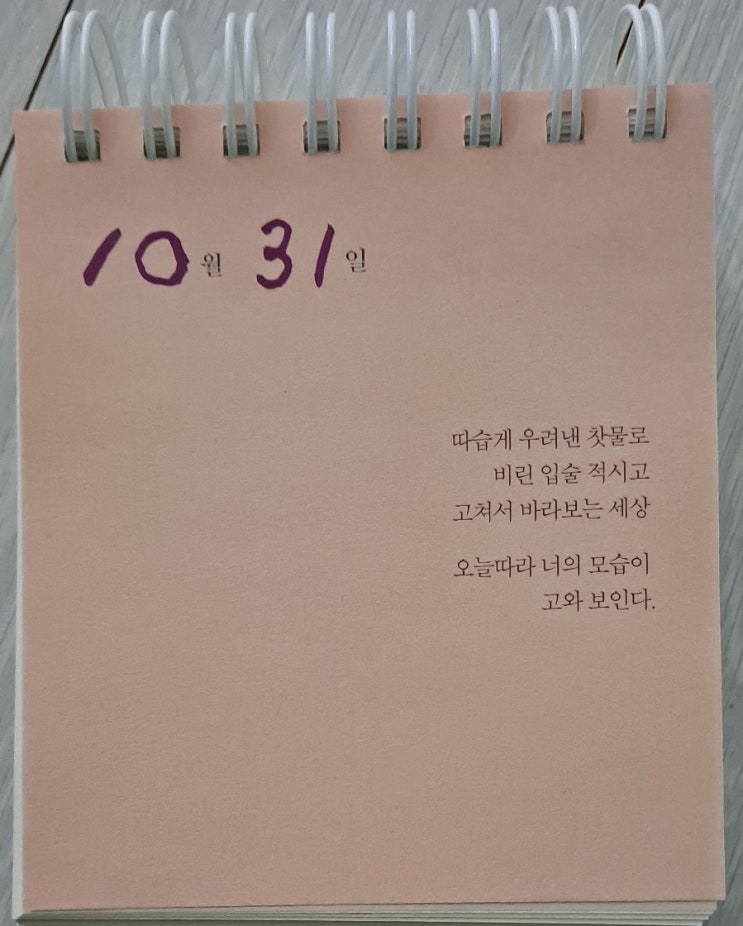 10월 31일
따습게 우려낸 찻물로
비린 입술 적시고
고쳐서 바라보는 세상
오늘따라 너의 모습이
고와 보인다.